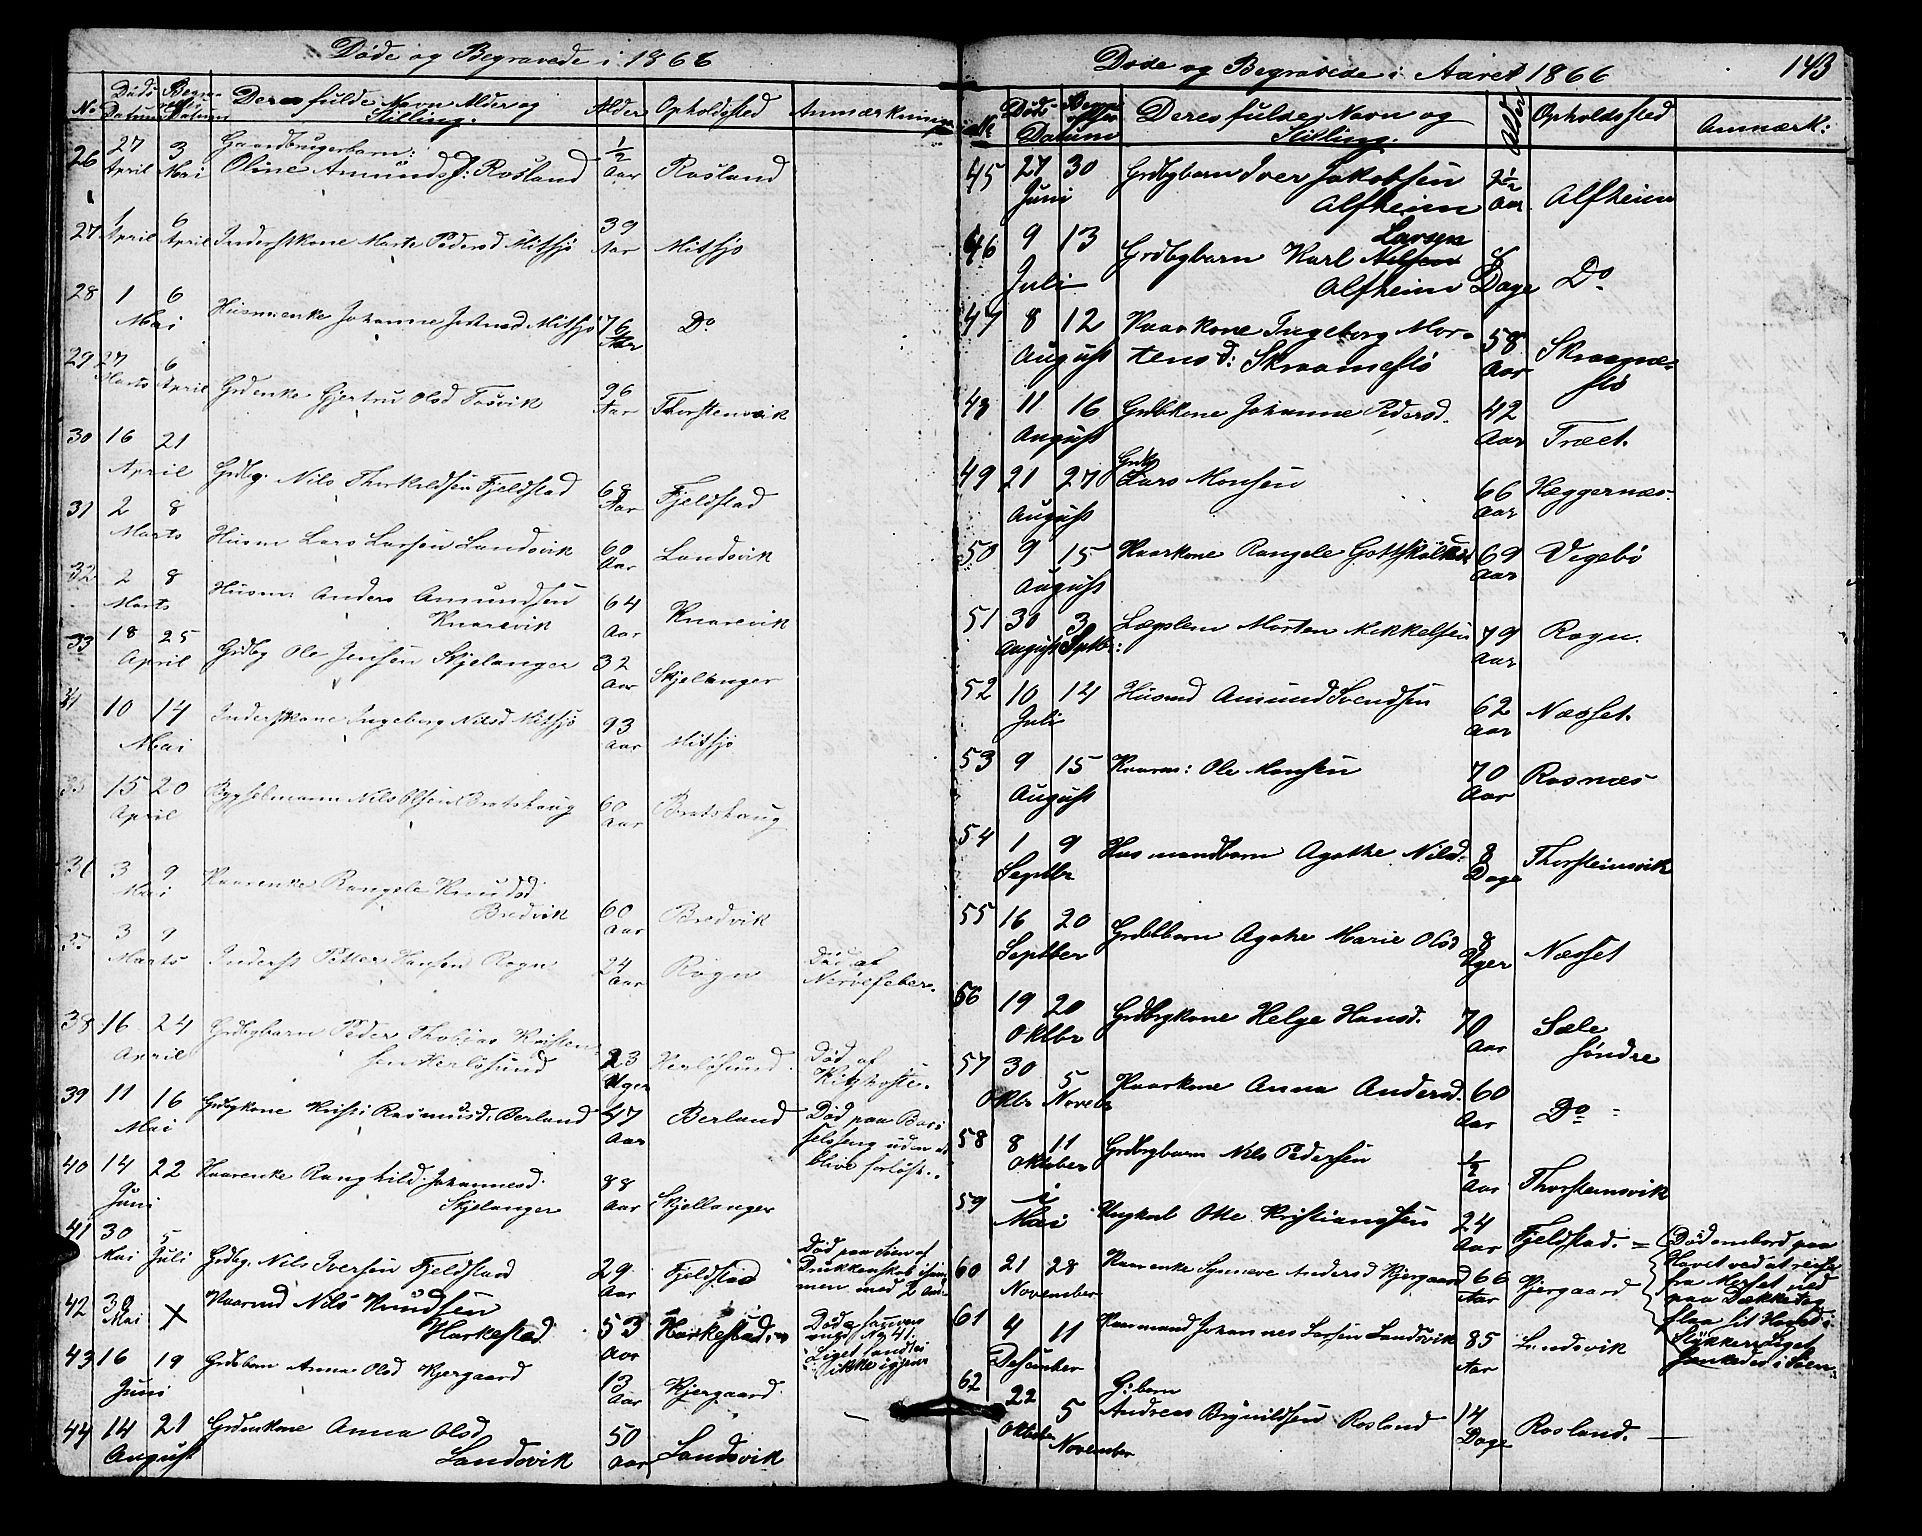 Døde og Begravede i 1866
No
Døds Datum
Begravelses Datum
Deres fulde Navn Alder og Stilling.
Alder
Opholdsted
Anmærkninger
26 27 April 3 Mai Gaardbrugerbarn: Oline Amunds d: Rosland 1/2 Aar Rosland
27 1 April 6 April Inderstkone Marte Pedersd Mitsjø 39 Aar Mitsjø
28 1 Mai 6 Husmenke Johanne Mitsjø 76 Aar Do
29 27 Marts 6 April Grdenke Gjertru Olsd 96 Aar Thorstenvik
30 16 April 21 Grdbg. Nils Thorkeldsen Fjeldstad 68 Aar Fjeldstad
31 2 Marts 8 Husm Lars Larsen Landsvik 60 Aar Landsvik
32 2 Marts 8 Husm Anders Amundsen Knarevik 64 Aar Knarevik
33 18 April 25 Grdbg Ole Jensen Skjelanger 32 Aar Skjelanger
34 10 Mai 14 Inderstkone Ingeborg Nilsd Mitsjø 93 Aar Mitsjø
35 15 April 20 Bygselmann Nils Olsen Bratshaug 60 Aar Bratshaug
36 3 Mai 9 Kaarenke Rangele Knudsd Bredvik 60 Aar Bredvik
37 3 Marts 9 Inderst Petter Hansen Rogn 24 Aar Rogn Død af Nervefeber.
38 16 April 24 Grdbgbarn Peder Thobias Kristensen Herløsund 23 Uger Herløsund Død af Kighoste.
39 11 Mai 16 Grdbgkone Kristi Rasmusd: Berland 47 Aar Berland Død paa Barselseng uden at blive forløst.
40 14 Juni 22 Kaarenke Ranghild Johannesd. Skjelanger 88 Aar Skjellanger
41 30 Mai 5 Juli Grdbg. Nils Iversen Fjeldstad 29 Aar Fjeldstad Død paa Søen af Drukkenskab med 2
42 30 Mai X Kaarmd Nils Knudsen Harkestad 53 Aar Harkestad Død No 41. Liget funtes ikke igjen
43 16 Juni 19 Grdbbarn Anna Olsd Kjergaard 13 Aar Kjergaard
44 14 August 21 Grdmkone Anna Olsd Landsvik 50 Aar Landsvik
Døde og Begravede i Aaret 1866
143
No
Døds Datum
Begravelses
Deres fulde Navn og Stilling.
Alder
Opholdssted
Anmærk:
45 27 Juni 30 Grdbgbarn Iver Jakobsen Alfheim 2 1/2 Aar Alfheim
46 9 Juli 13 Grdbgbarn Karl Nilsen Larsen Alfheim 8 Dage Do
47 8 August 12 Kaarkone Ingeborg Mortens d: Skraamestø 58 Aar Skraamestø
48 11 August 16 Grdbkone Johanne Pedersd. 42 Aar Træet.
49 21 August 27 Grdb Lars Monsen 66 Aar Hæggernæs.
50 9 August 15 Kaarkone Rangele Gottskalksd 69 Aar Vegebø
51 30 August 3 Septbr: Lægslem Morten Mikkelsen 79 Aar Rogn.
52 10 Juli 14 Husmd Amund Svendsen 62 Aar Næsset.
53 9 August 15 Kaarm: Ole Monsen 70 Aar Rosnæs
54 1 Septbr 9 Husmandbarn Agathe Nilsd. 8 Dage Thorsteinsvik
55 16 Septber 20 Grdbbarn Agate Marie Olsd 8 Uger Næsset
56 19 Oktbr 20 Grdbrgkone Helge Hansd. 70 Aar Sæle søndre
57 30 Oktbr 5 Novebr Kaarkone Anna Andersd. 60 Aar Do
58 8 Oktober 11 Grdbrgbarn Nils Pedersen 1/2 Aar Thorsteinsvik
59 i Mai Ungkarl Otte Kristiangsen 24 Aar Fjeldstad. = Død ombord paa Havet ved at reise fra ned paa Dækket og
60 21 November 28 Kaarenke Synneve Andersd Kjergaard 66 Aar Kjergaard
61 4 Desember 11 Kaarmand Johannes Larsen Landsvik 85 Aar Landsvik
62 22 Oktober 5 November G: barn Andreas Brynildsen Rosland 14 Dage Rosland.